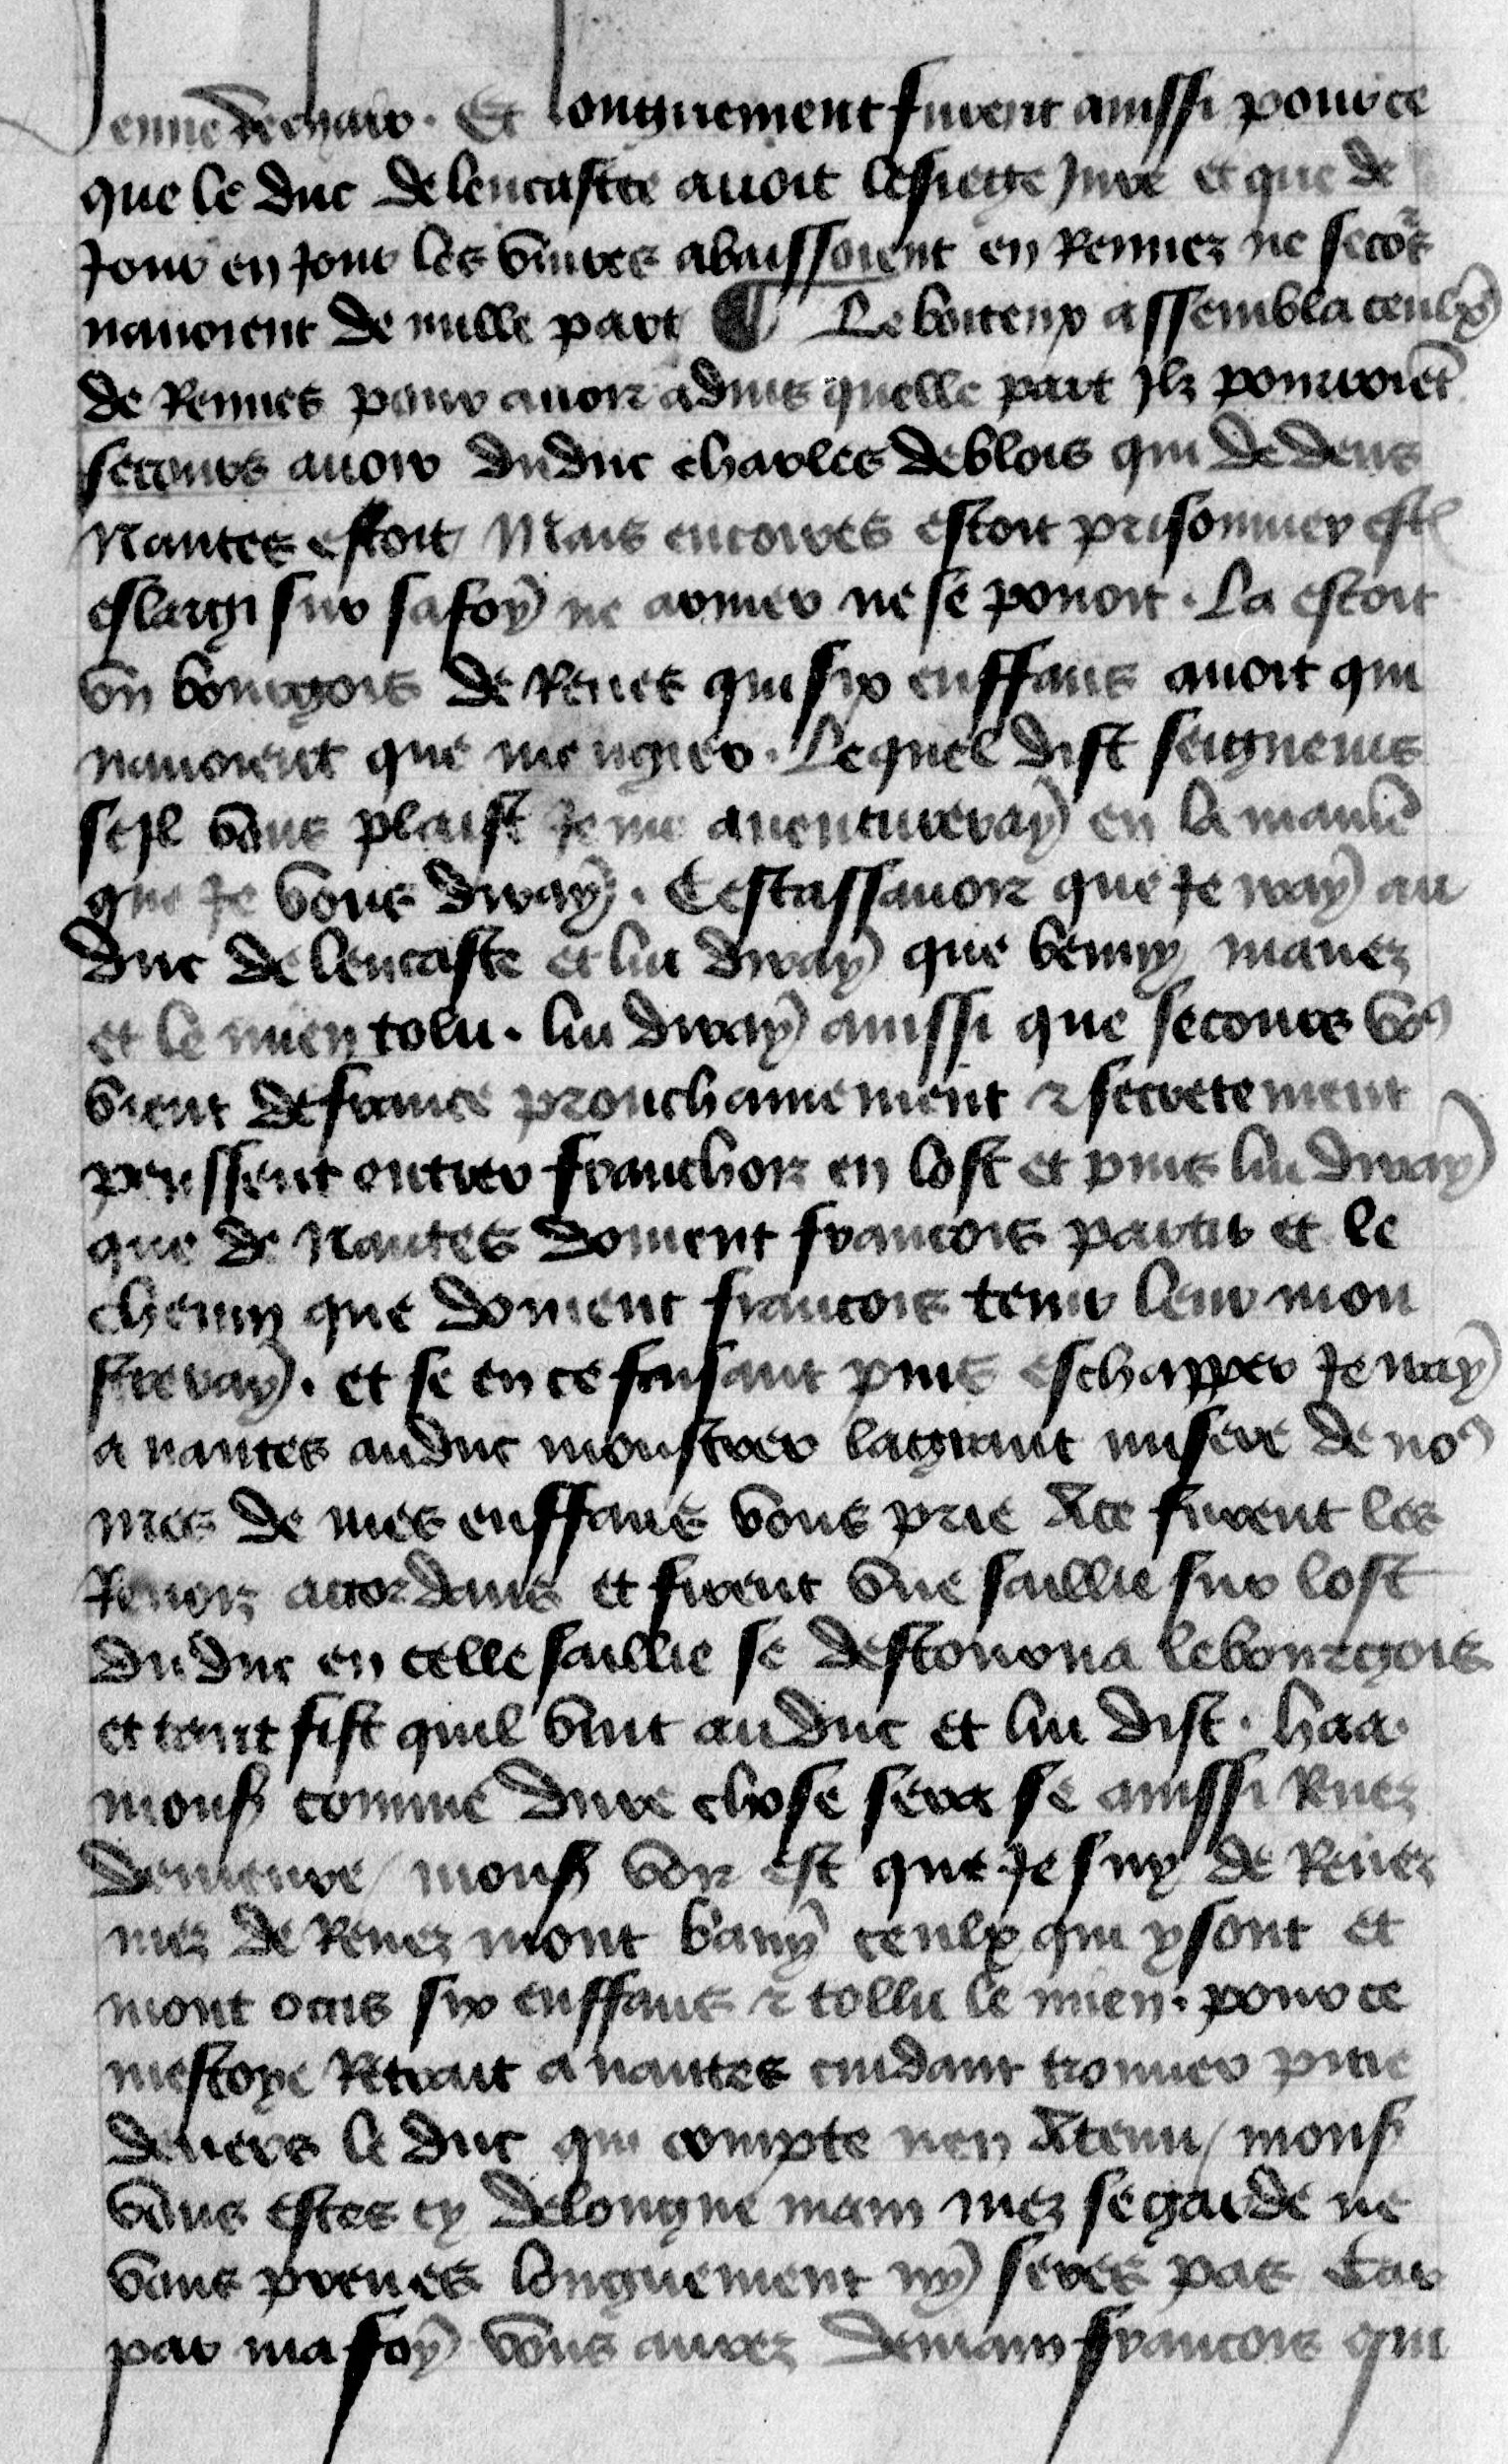 Jenne de char. Et longuement furent aussi pour ce
que le duc de lencastre auoit le siege Jure et que de
Jour en Jour les viures abaissoient en Rennez ne seco's
nauoient de nulle part ¶ Le boiteux assembla ceulx
de Rennes pour auoir aduis quelle part Jlz pourroiēt
secours auoir du duc charles de blois qui dedens
Nantes estoit Mais encores estoit prisonnier est
eslargi sur sa foy ne armer ne se pouoit. La estoit
vn bourgois de Renes qui six enffans auoit qui
nauoient que mengier. Lequel dist seigneurs
se Jl vous plaist Je me auentureray en la maniē
que Je vous diray. Cestassauoir que Je iray au
duc de lencastre et lui diray que benny mauez
et le mien tolu. lui diray aussi que secours vo9
vient de france prouchainement ⁊ secretement
pensent entrer franchois en lost et puis lui diray
que de Nantes doiuent francois partir et le
chemin que doiuent francois tenir leur mon
streray. et se en ce faisant puis eschapper Je iray
a nantes au duc monstrer la grant misere de no9
mes de mes enffans vous prie A ce furent les
Renois acordans et firent vne saillie sur lost
du duc en celle saillie se destourna le bourgois
et tant fist quil vint au duc et lui dist. haa.
mons comme dure chose sera se aussi Rnez
demeure / mons voir est que Je suy de Renez
mez de Renez mont bany ceulx qui y sont et
mont ocis six enffans ⁊ tollu le mien. pour ce
mestoye Retrait a nantes cuidant trouuer pitie
deuers le duc qui compte nen A tenu / mons
vous estes cy de longue main mez se garde ne
vous prenes longuement ny seres pas Car
par ma foy vous aurez demain francois qui